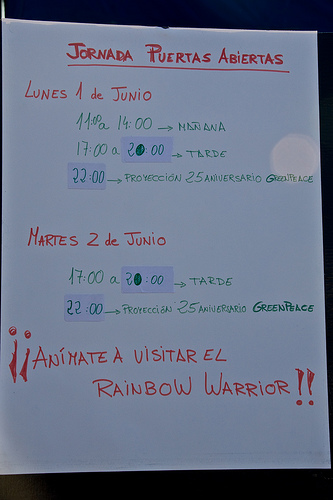 JORNADA PUERTAS ABIERTAS
LUNES 1 de JUNIO
11:00 a 14:00 → MAÑANA
17:00 a 20:00 → TARDE
22:00 → PROYECCIÓN 25 ANIVERSARIO GREENPEACE
MARTES 2 de JUNIO
17:00 a 20:00 → TARDE
22:00 → PROYECCIÓN 25 ANIVERSARIO GREENPEACE
¡¡ANÍMATE A VISITAR EL
RAINBOW WARRIOR!!